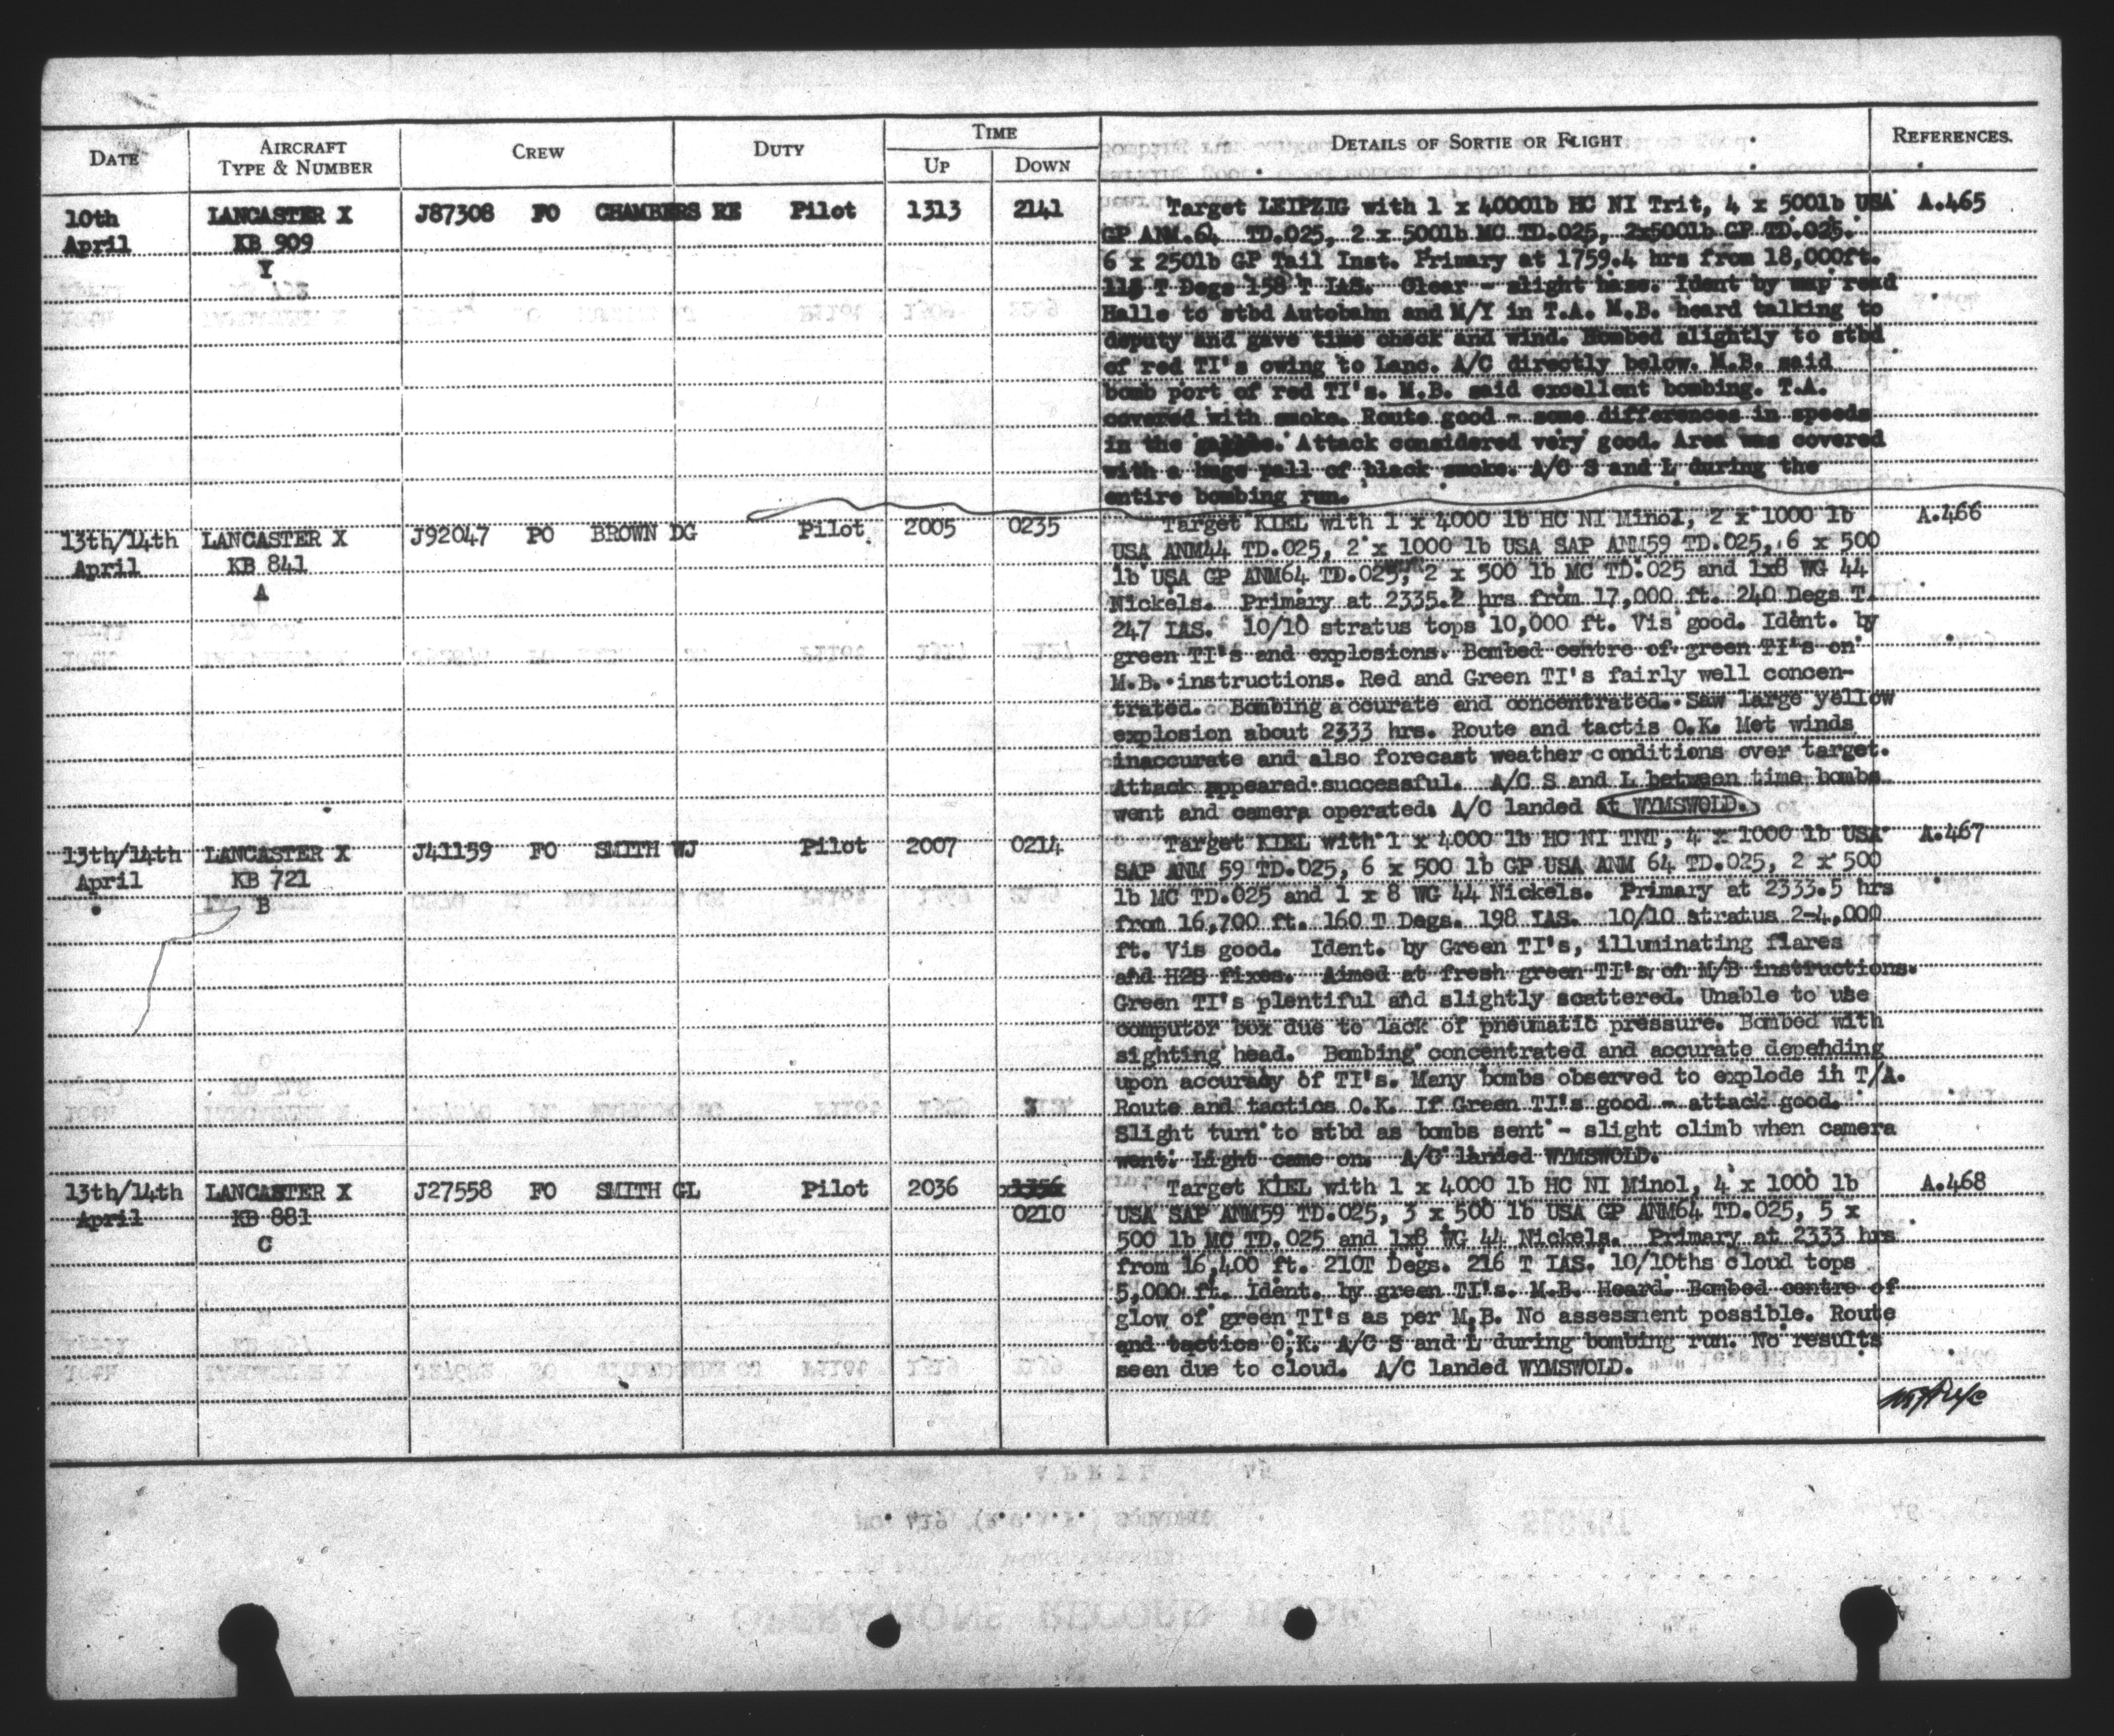 DATE AIRCRAFT TYPE & NUMBER CREW DUTY TIME UP DOWN DETAILS OF SORTIE OR FLIGHT REFERENCES.
10th LANCASTER X J87308 FO CHAMBERS RE Pilot 1313 2141 Target LEIPZIG with 1 x 4000lb HC NI Trit, 4 x 500lb USA A.465
April KB 909 GP ANM.64 TD.025, 2 x 500lb MC TD.025, 2x500lb GP TD.025.
Y 6 x 250lb GP Tail Inst. Primary at 1759.4 hrs from 18,000ft.
T Degs 158 T IAS. Clear - slight haze. Ident by map read
Halle to stbd Autobahn and M/Y in T.A. M.B. heard talking to
deputy and gave time check and wind. Bombed slightly to stbd
of red TI's owing to Lanc. A/C directly below. M.B. said
bomb port of red TI's. M.B. said excellent bombing. T.A.
covered with smoke. Route good - some differences in speeds
in the gaggle. Attack considered very good. Area was covered
with a huge pall of black smoke. A/C S and L during the
entire bombing run.
13th/14th LANCASTER X J92047 PO BROWN DG Pilot. 2005 0235 Target KIEL with 1 x 4000 lb HC NI Minol, 2 x 1000 lb A.466
April KB 841 USA ANM44 TD.025, 2 x 1000 lb USA SAP ANM59 TD.025, 6 x 500
A lb USA GP ANM64 TD.025, 2 x 500 lb MC TD.025 and 1x8 WG 44
Nickels. Primary at 2335.2 hrs from 17,000 ft. 240 Degs T.
247 IAS. 10/10 stratus tops 10,000 ft. Vis good. Ident. by
green TI's and explosions. Bombed centre of green TI's on
M.B. instructions. Red and Green TI's fairly well concen-
trated. Bombing accurate and concentrated. Saw large yellow
explosion about 2333 hrs. Route and tactis O.K. Met winds
inaccurate and also forecast weather conditions over target.
Attack appeared successful. A/C S and L between time bombs
went and camera operated. A/C landed at WYMSWOLD.
13th/14th LANCASTER X J41159 FO SMITH WJ Pilot 2007 0214 Target KIEL with 1 x 4000 lb HC NI TNT, 4 x 1000 lb USA A.467
April KB 721 SAP ANM 59 TD.025, 6 x 500 lb GP USA ANM 64 TD.025, 2 x 500
B lb MC TD.025 and 1 x 8 WG 44 Nickels. Primary at 2333.5 hrs
from 16,700 ft. 160 T Degs. 198 IAS. 10/10 stratus 2-4,000
ft. Vis good. Ident. by Green TI's, illuminating flares
and H2S fixes. Aimed at fresh green TI's on M/B instructions.
Green TI's plentiful and slightly scattered. Unable to use
computor box due to lack of pneumatic pressure. Bombed with
sighting head. Bombing concentrated and accurate depending
upon accuracy of TI's. Many bombs observed to explode in T/A.
Route and tactics O.K. If Green TI's good - attack good.
Slight turn to stbd as bombs sent - slight climb when camera
went. Light came on. A/C landed WYMSWOLD.
13th/14th LANCASTER X J27558 FO SMITH GL Pilot 2036 Target KIEL with 1 x 4000 lb HC NI Minol, 4 x 1000 lb A.468
April KB 881 0210 USA SAP ANM59 TD.025, 3 x 500 lb USA GP ANM64 TD.025, 5 x
C 500 lb MC TD.025 and 1x8 WG 44 Nickels. Primary at 2333 hrs
from 16,400 ft. 210T Degs. 216 T IAS. 10/10ths cloud tops
5,000 ft. Ident. by green TI's. M.B. Heard. Bombed centre of
glow of green TI's as per M.B. No assessment possible. Route
and tactics O.K. A/C S and L during bombing run. No results
seen due to cloud. A/C landed WYMSWOLD.